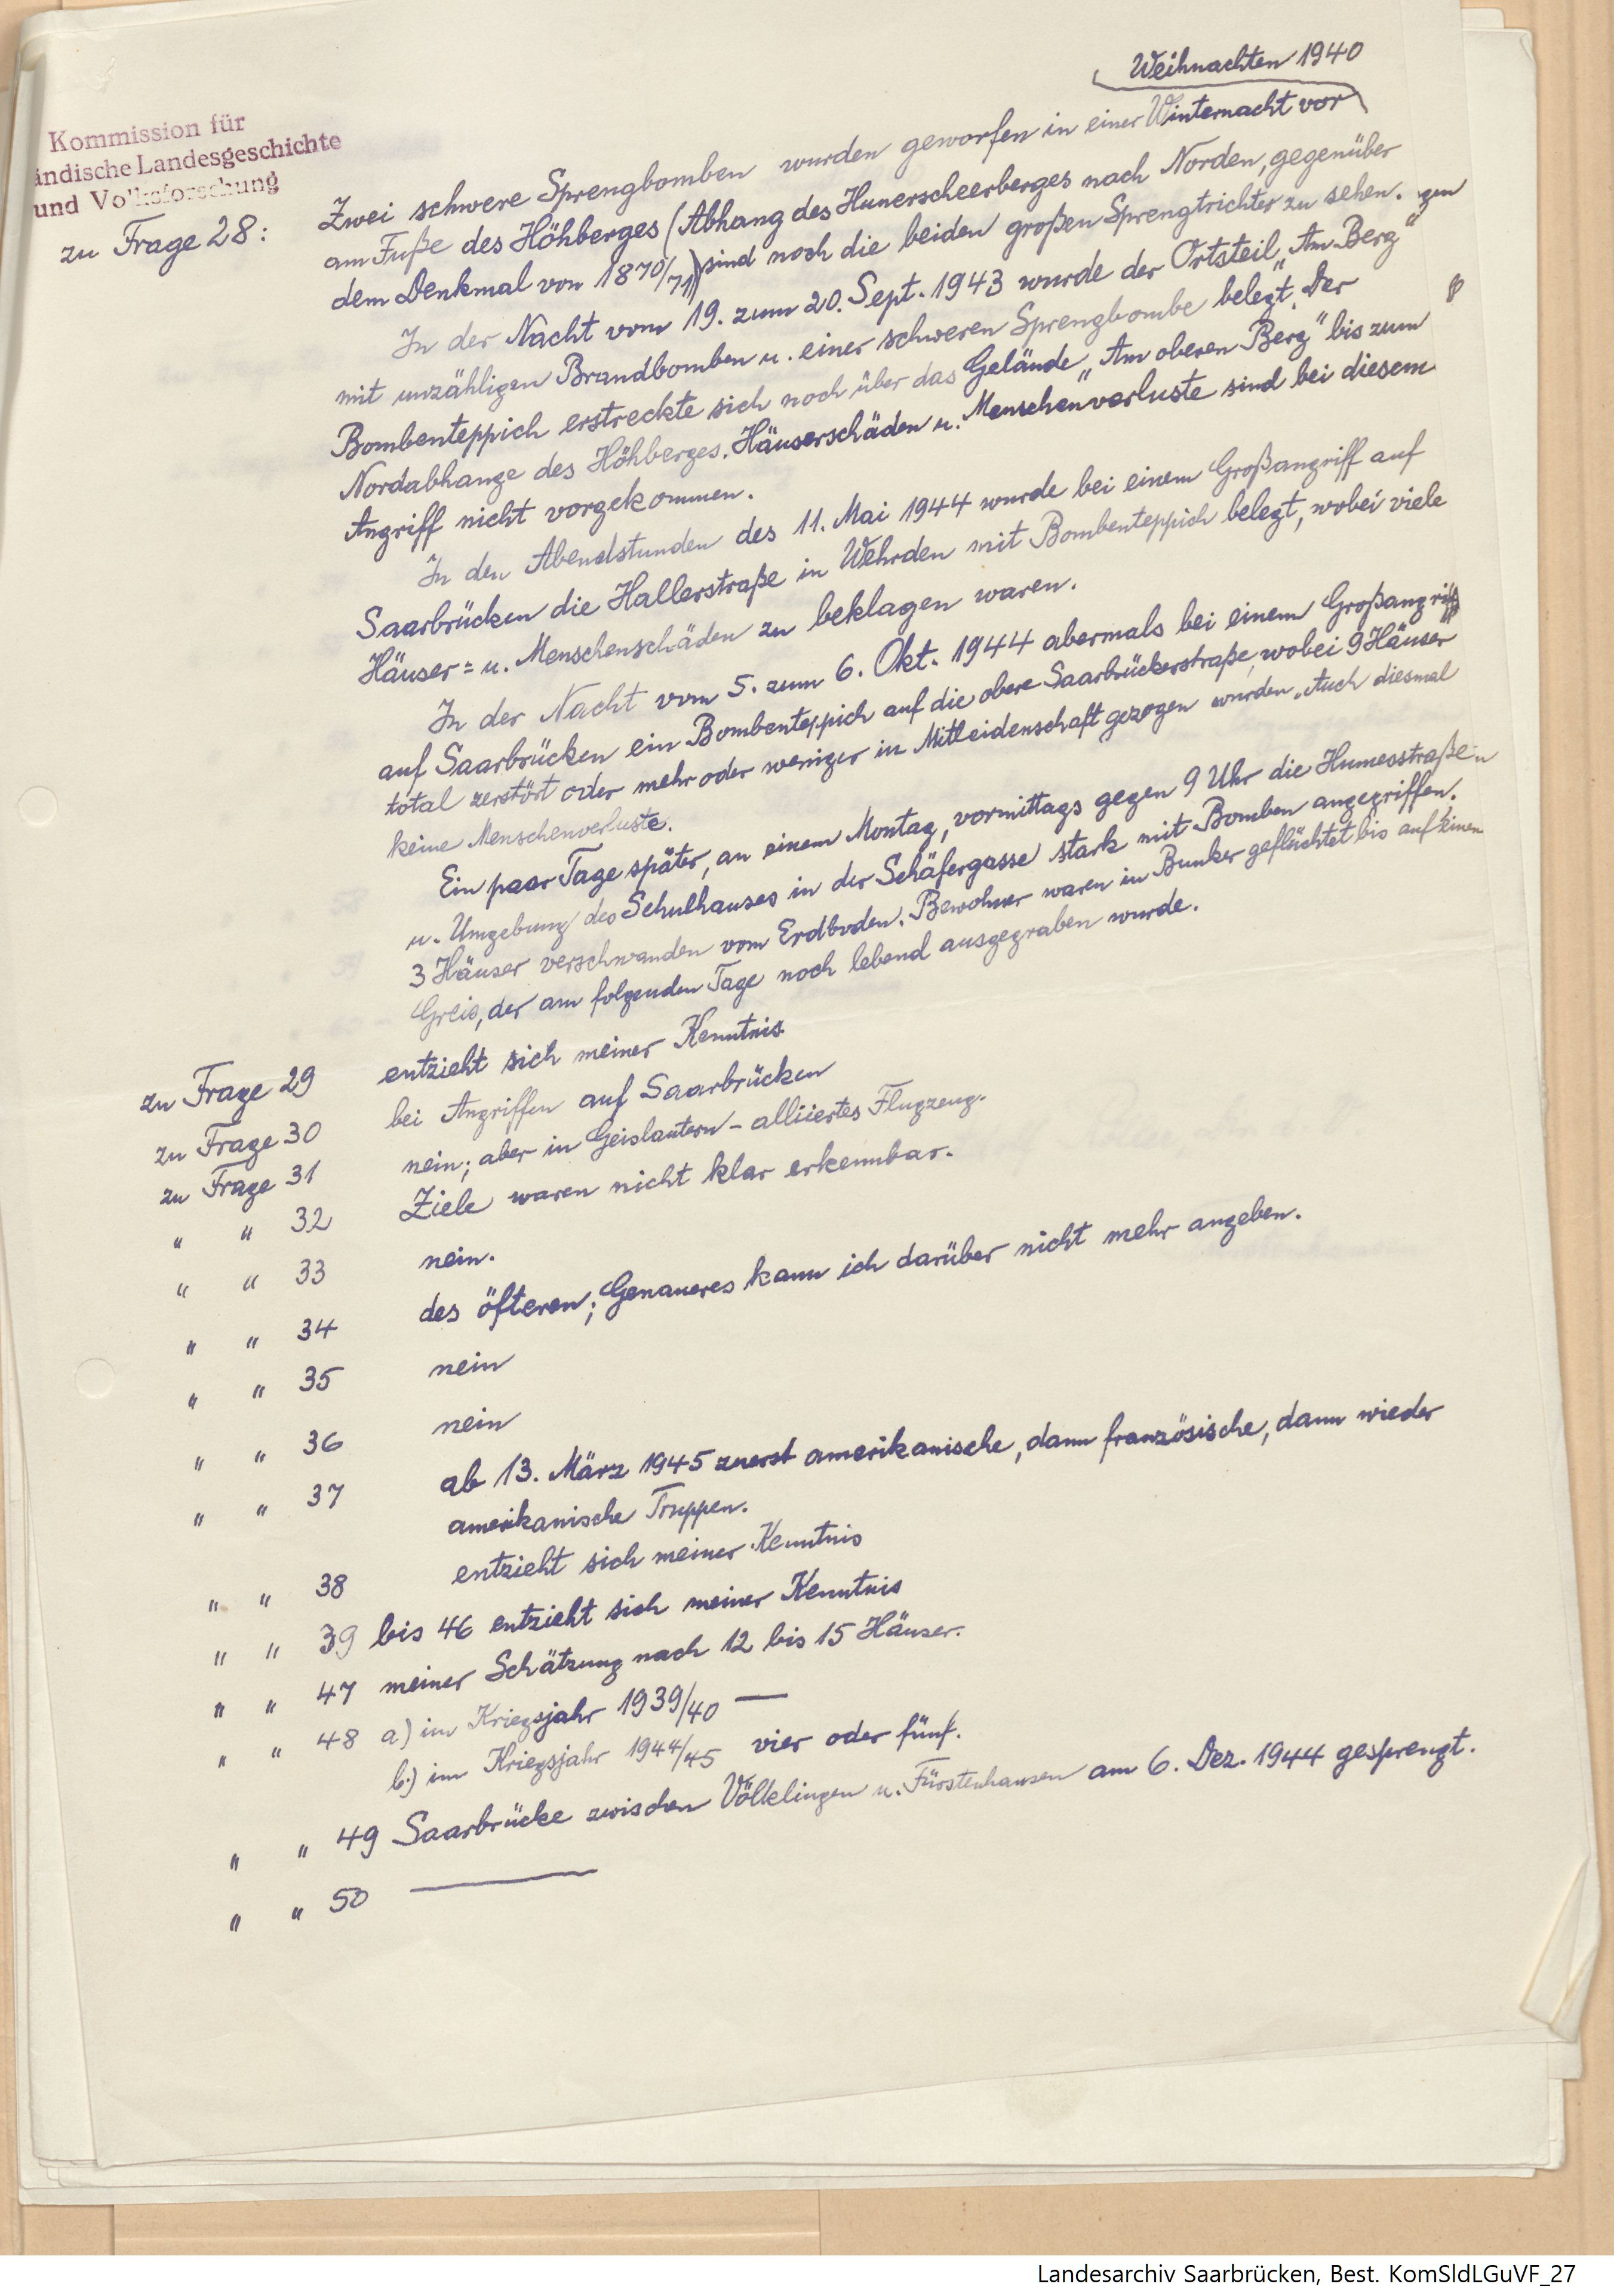 Weihnachten 1940
Kommission für
ändische Landesgeschichte
und Volksforschung
zu Frage 28: Zwei schwere Sprengbomben wurden geworfen in einer Winternacht vor
am Fuße des Höhberges (Abhang des Hunerscheerberges nach Norden, gegenüber
dem Denkmal von 1870/71) sind noch die beiden großen Sprengtrichter zu sehen.
In der Nacht vom 19. zum 20. Sept. 1943 wurde der Ortsteil „Am Berg"
mit unzähligen Brandbomben u. einer schweren Sprengbombe belegt. Der
Bombenteppich erstreckte sich noch über das Gelände „Am oberen Berg" bis zum
Nordabhange des Höhberges. Häuserschäden u. Menschenverluste sind bei diesem
Angriff nicht vorgekommen.
In den Abendstunden des 11. Mai 1944 wurde bei einem Großangriff auf
Saarbrücken die Hallerstraße in Wehrden mit Bombenteppich belegt, wobei viele
Häuser= u. Menschenschäden zu beklagen waren.
In der Nacht vom 5. zum 6. Okt. 1944 abermals bei einem Großangriff
auf Saarbrücken ein Bombenteppich auf die obere Saarbrückerstraße, wobei 9 Häuser
total zerstört oder mehr oder weniger in Mitleidenschaft gezogen wurden. Auch diesmal
keine Menschenverluste.
Ein paar Tage später, an einem Montag, vormittags gegen 9 Uhr die Humesstraße
u. Umgebung des Schulhauses in der Schäfergasse stark mit Bomben angegriffen.
3 Häuser verschwanden vom Erdboden. Bewohner waren in Bunker geflüchtet bis auf einen
Greis, der am folgenden Tage noch lebend ausgegraben wurde.
zu Frage 29 entzieht sich meiner Kenntnis
zu Frage 30 bei Angriffen auf Saarbrücken
zu Frage 31 nein; aber in Geislautern – alliiertes Flugzeug.
" " 32 Ziele waren nicht klar erkennbar.
" " 33 nein.
" " 34 des öfteren; Genaueres kann ich darüber nicht mehr angeben.
" " 35 nein
" " 36 nein
" " 37 ab 13. März 1945 zuerst amerikanische, dann französische, dann wieder
amerikanische Truppen.
" " 38 entzieht sich meiner Kenntnis
" " 39 bis 46 entzieht sich meiner Kenntnis
" " 47 meiner Schätzung nach 12 bis 15 Häuser.
" " 48 a) im Kriegsjahr 1939/40 —
b.) im Kriegsjahr 1944/45 vier oder fünf.
" " 49 Saarbrücke zwischen Völklingen u. Fürstenhausen am 6. Dez. 1944 gesprengt.
" " 50 —
Landesarchiv Saarbrücken, Best. KomSldLGuVF_27